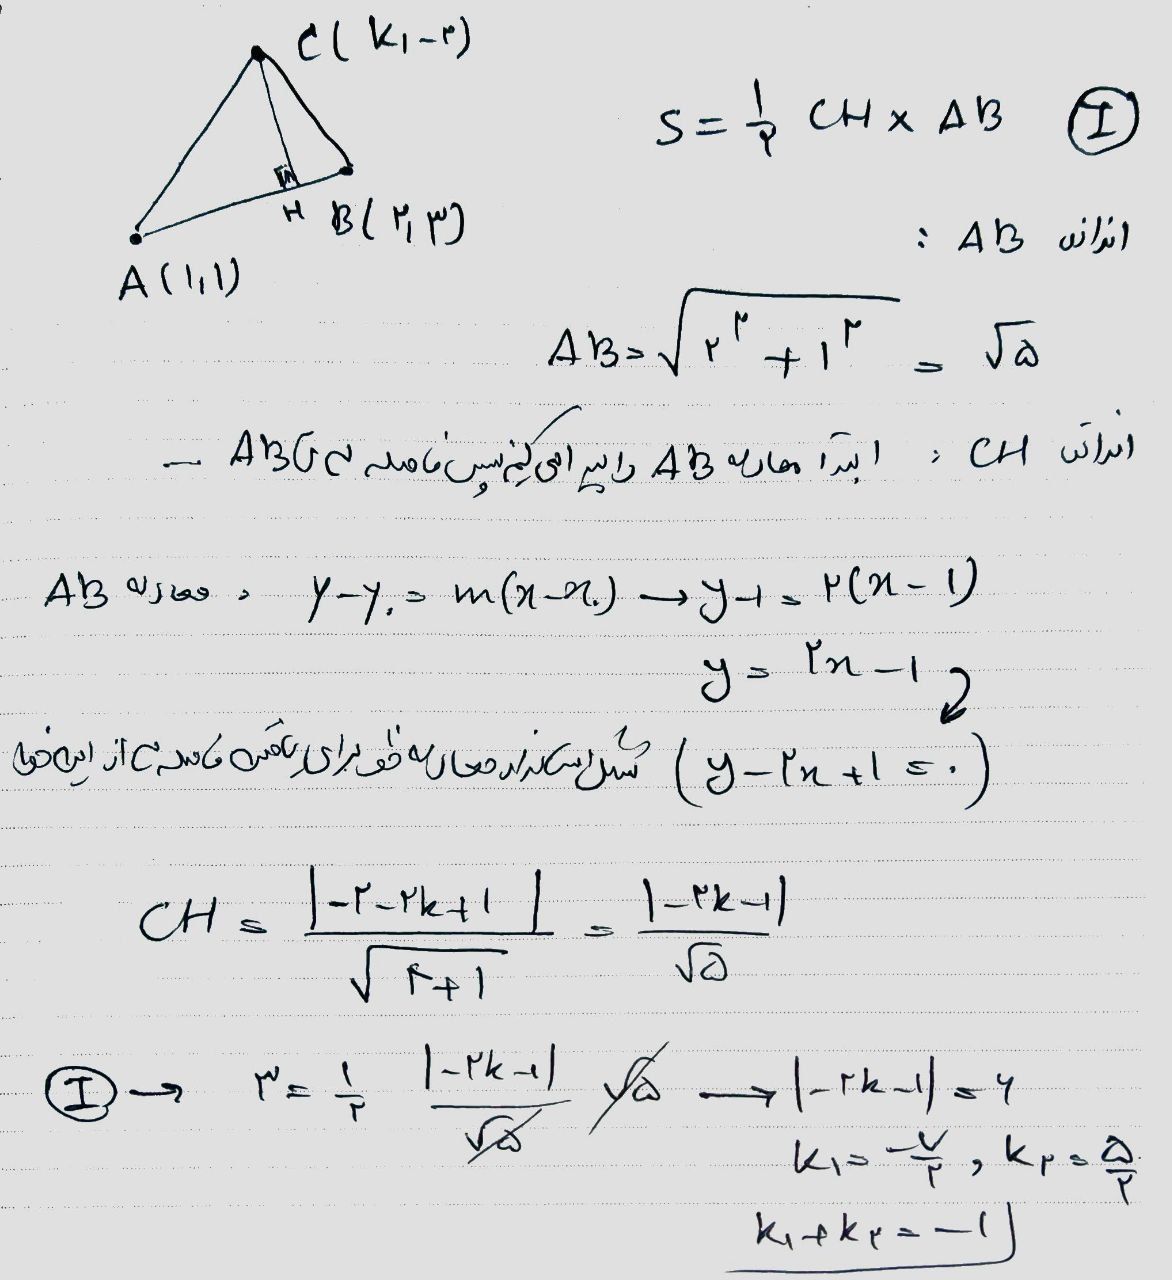 C(k, -۲)
S = ۱/۲ CH × AB Ⓘ
H
B(۲, ۳)
A(۱, ۱)
اندازه AB :
AB = √(۲^۲ + ۱^۲) = √۵
اندازه CH : ابتدا معادله AB را پیدا می کنیم سپس فاصله C تا AB –
معادله AB : y - y۰ = m(x - x۰) → y - ۱ = ۲(x - ۱)
y = ۲x - ۱
(y - ۲x + ۱ = ۰) شکل استاندارد معادله خط برای یافتن فاصله C از این خط
CH = |-۲ - ۲k + ۱| / √(۴ + ۱) = |-۲k - ۱| / √۵
Ⓘ → ۳ = ۱/۲ |-۲k - ۱| / √۵ √۵ → |-۲k - ۱| = ۶
k۱ = -۷/۲ , k۲ = ۵/۲
k۱ + k۲ = -۱